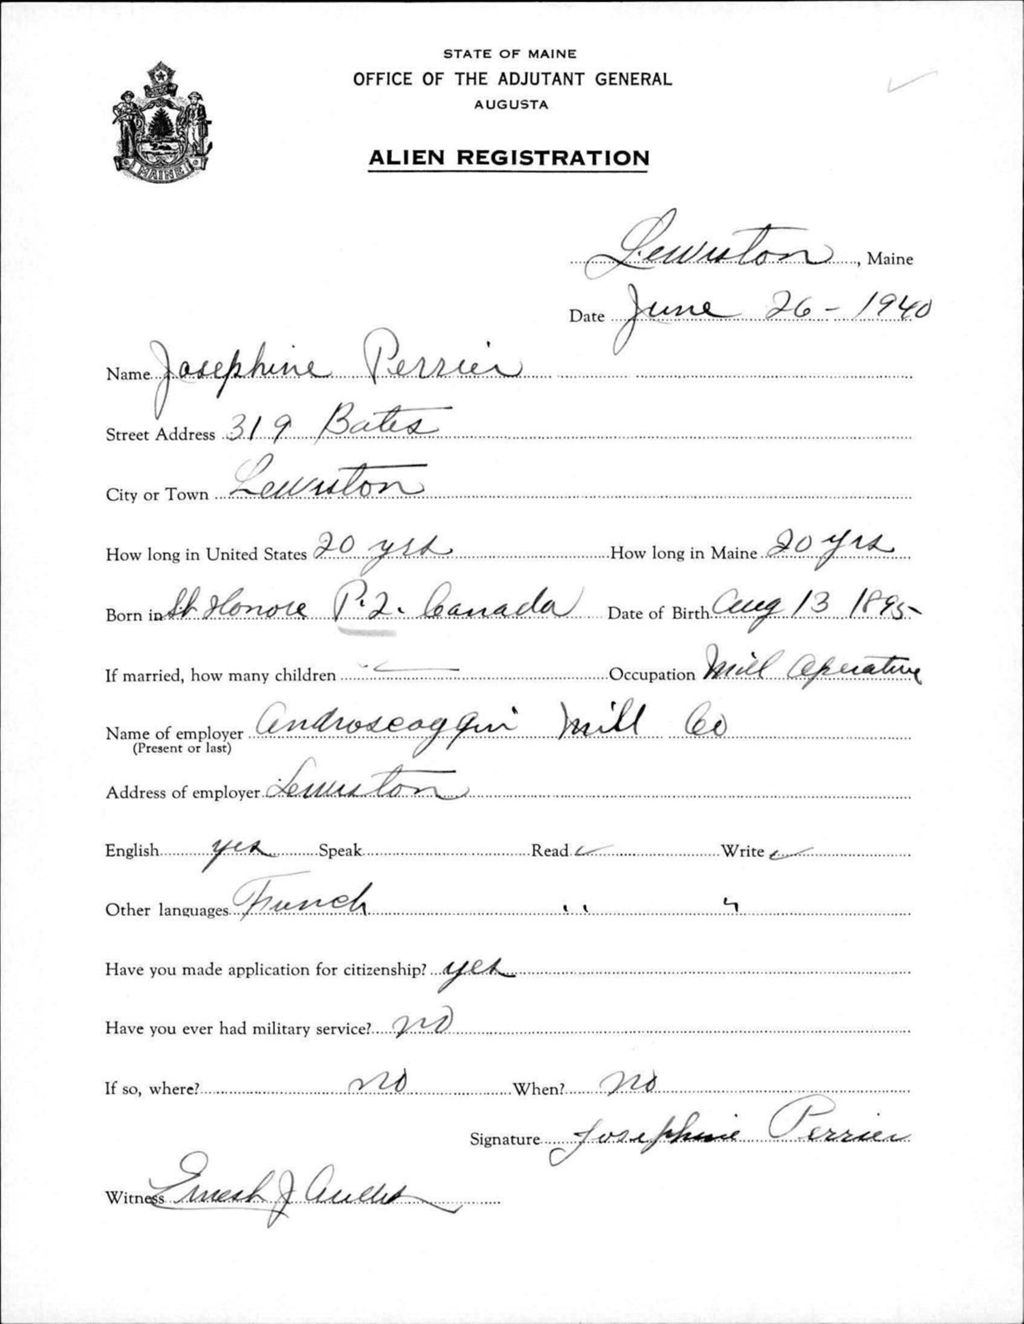 STATE OF MAINE
OFFICE OF THE ADJUTANT GENERAL
AUGUSTA
ALIEN REGISTRATION
MAINE
Lewiston, Maine
Date June 26 - 1940
Name Josephine Perrier
Street Address 319 Bates
City or Town Lewiston
How long in United States 20 yrs How long in Maine 20 yrs
Born in St Honore P.Q. Canada Date of Birth Aug 13 1895
If married, how many children — Occupation Mill Operative
Name of employer Androscoggin Mill Co
(Present or last)
Address of employer Lewiston
English yes Speak Read ✓ Write ✓
Other languages French " "
Have you made application for citizenship? yes
Have you ever had military service? no
If so, where? no When? no
Signature Josephine Perrier
Witness Ernest J